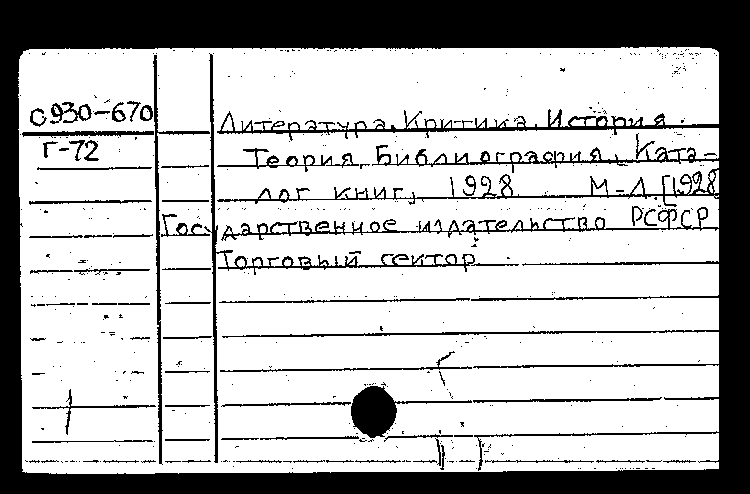 С930-670
Г-72
Литература, Критика, История.
Теория, Библиография, Ката-
лог книг, 1928 М-Л [1928
Государственное издательство РСФСР
Торговый сектор.